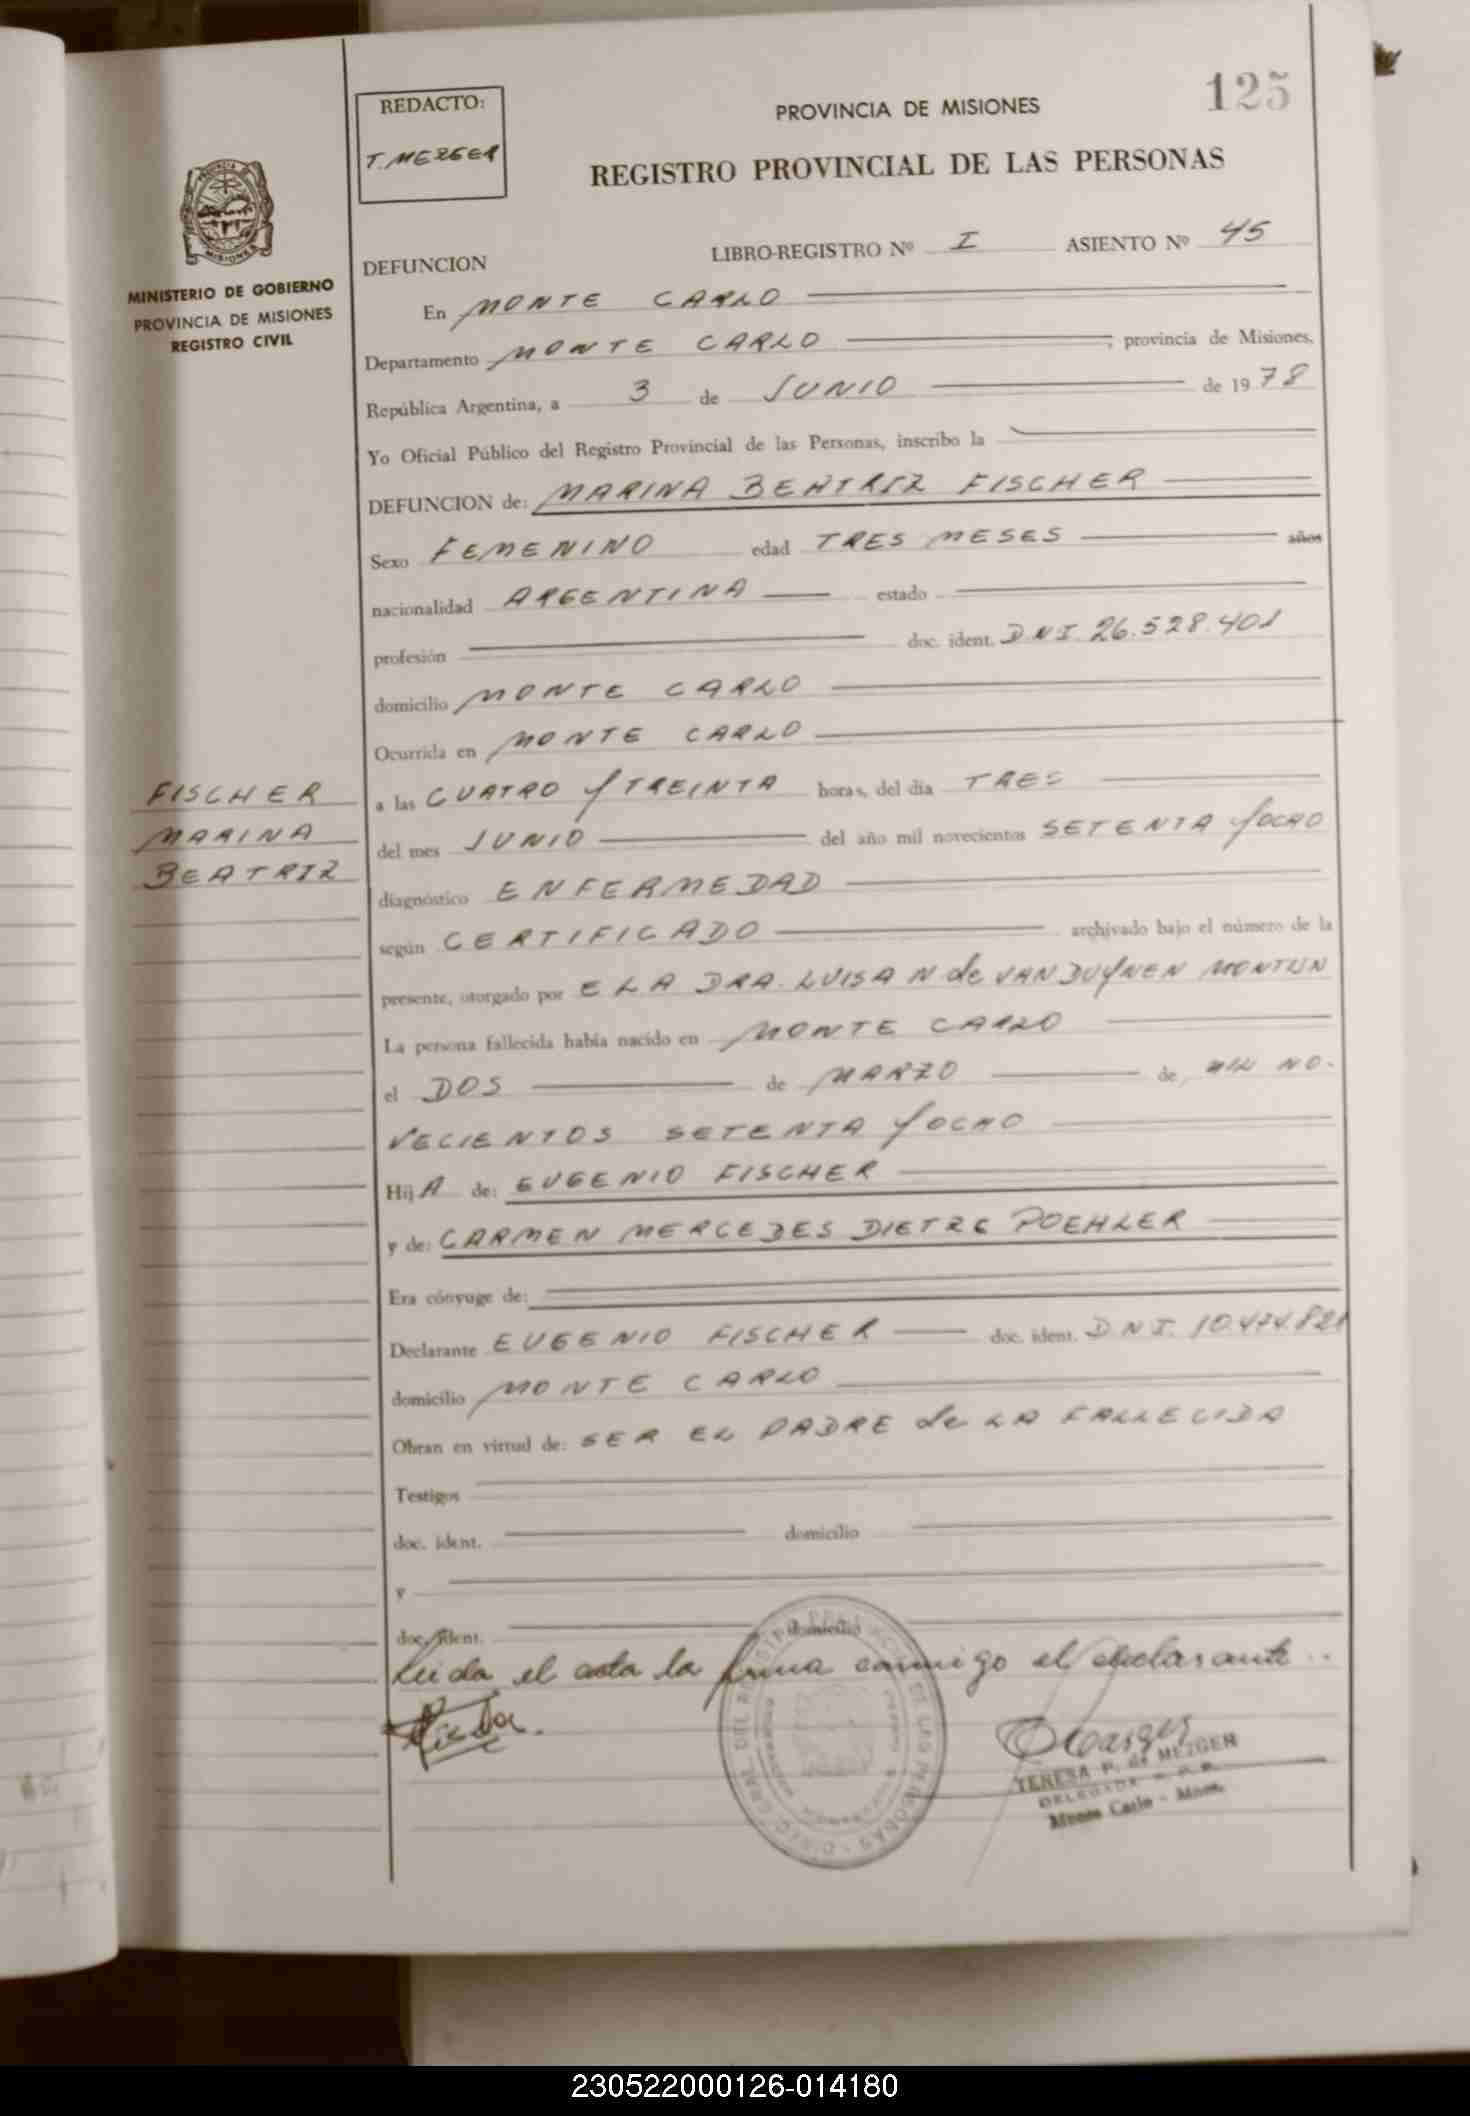 125
REDACTO:
T. MEZGER
PROVINCIA DE MISIONES
REGISTRO PROVINCIAL DE LAS PERSONAS
MISIONES
MINISTERIO DE GOBIERNO
PROVINCIA DE MISIONES
REGISTRO CIVIL
DEFUNCION LIBRO-REGISTRO Nº I ASIENTO Nº 45
En MONTE CARLO
Departamento MONTE CARLO ; provincia de Misiones,
República Argentina, a 3 de JUNIO de 1978
Yo Oficial Público del Registro Provincial de las Personas, inscribo la
DEFUNCION de: MARINA BEATRIZ FISCHER
Sexo FEMENINO edad TRES MESES años
nacionalidad ARGENTINA estado
profesión doc. ident. DNI 26.528.401
domicilio MONTE CARLO
Ocurrida en MONTE CARLO
FISCHER
MARINA
BEATRIZ
a las CUATRO Y TREINTA horas, del día TRES
del mes JUNIO del año mil novecientos SETENTA Y OCHO
diagnóstico ENFERMEDAD
según CERTIFICADO archivado bajo el número de la
presente, otorgado por E LA DRA. LUISA N de VAN DUYNEN
La persona fallecida había nacido en MONTE CARLO
el DOS de MARZO de MIL NO-
VECIENTOS SETENTA Y OCHO
Hij A de: EUGENIO FISCHER
y de: CARMEN MERCEDES POEHLER
Era cónyuge de:
Declarante EUGENIO FISCHER doc. ident. D N I. 10.474.821
domicilio MONTE CARLO
Obran en virtud de: SER EL PADRE de LA FALLECIDA
Testigos
doc. ident. domicilio
y
doc. ident. domicilio
Leida el acta la firma conmigo el declarante..
TERESA P. de MEZGER
DELEGADA R. P. P.
Monte Carlo - Mnes.
230522000126-014180